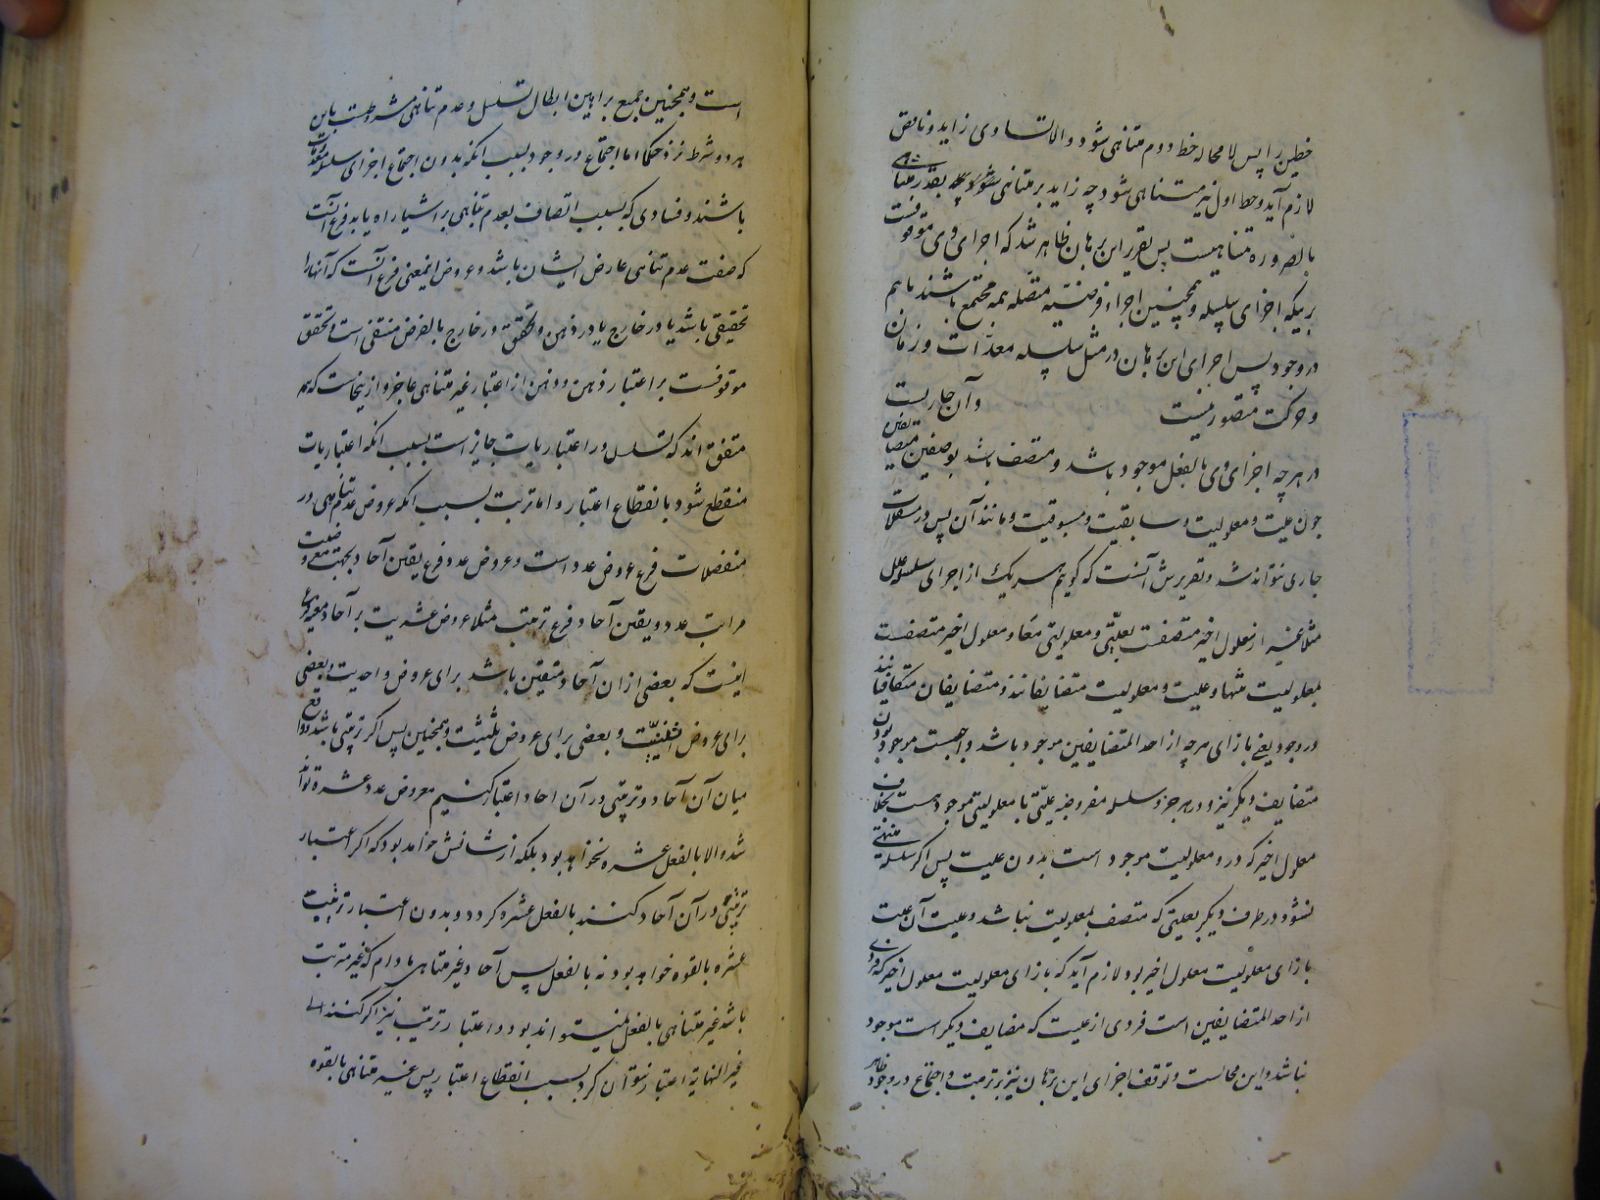 خطین را پس لا محاله خط دوم متناهی شود و الا تساوی زاید و ناقص
لازم آید و خط اول نیز متناهی شود چه زاید بر متناهی بقدر متناهی
بالضروره متناهیست پس بتقریر این برهان ظاهر شد که اجرای وی موقوفست
بر اینکه اجزای سلسله و همچنین اجزاء فرضیه متصله همه مجتمع باشند باهم
در وجود پس اجرای این برهان در مثل سلسله معدات و زمان
و حرکت متصور نیست و آن جاریست
در هر چه اجزای وی بالفعل موجود باشد و متصف باشد بوصفین متضایفین
چون علیت و معلولیت و سابقیت و مسبوقیت و مانند آن پس در متصلات
جاری نتواند شد و تقریرش آنست که گویم هر یک از اجزای سلسله علل
مثلا غیر از معلول اخیر متصفست بعلیتی و معلولیتی معا و معلول اخیر متصفست
بمعلولیت تنها و علیت و معلولیت متضایفانند و متضایفان متکافیانند
در وجود یعنی بازای هر چه از احد المتضایفین موجود باشد واجبست موجود بودن
متضایف دیگر نیز و در هر جزو سلسله مفروضه علیتی با معلولیتی موجود هست بخلاف
معلول اخیر که در و معلولیت موجود است بدون علیت پس اگر سلسله منتهی
نشود در طرف دیگر بعلیتی که متصف بمعلولیت نباشد و علیت آن علت
بازای معلولیت معلول اخیر بود لازم آید که بازای معلولیت معلول اخیر که فردی
از احد المتضایفین است فردی از علیت که مضایف دیگر است موجود
نباشد و این محالست و توقف اجرای این برهان نیز بر ترتب و اجتماع در وجود ظاهر
است و همچنین جمیع براهین ابطال تسلسل و عدم تناهی مشروطست باین
هر دو شرط نزد حکما اما اجتماع در وجود بسبب آنکه بدون اجتماع اجزای سلسله
باشند و فسادی که بسبب اتصاف بعدم تناهی بر اشیا راه یابد فرع آنست
که صفت عدم تناهی عارض ایشان باشد و عروض اینمعنی فرع آنست که آنها را
تحقیقی باشد یا در خارج یا در ذهن و تحقق در خارج بالفرض منتفی است و تحقق
موقوفست بر اعتبار ذهن و ذهن از اعتبار غیر متناهی عاجز و از ینجاست که همه
متفق اند که تسلسل در اعتباریات جایز است بسبب انکه اعتباریات
منقطع شود بانقطاع اعتبار و اما ترتب بسبب انکه عروض عدم تناهی در
منفصلات فرع عروض عدد است و عروض عدد فرع یقین آحاد بجهت معروضیت
مراتب عدد و یقین آحاد فرع ترتب مثلا عروض عشریت بر آحاد
اینست که بعضی از ان آحاد متقین باشد برای عروض واحدیت و بعضی
برای عروض اثنینیت و بعضی برای عروض ثلثیت و همچنین پس اگر ترتیبی باشد
میان آن آحاد و ترتیبی در آن احاد اعتبار کنیم معروض عدد عشره تواند
شد و الا بالفعل عشره نخواهد بود بلکه از شانش خواهد بود که اگر اعتبار
ترتیبی در آن آحاد کنند بالفعل عشره گردد و بدون اعتبار ترتیب
عشره بالقوه خواهد بود نه بالفعل پس آحاد غیر متناهی مادام که غیر مترتب
باشد غیر متناهی بالفعل نمیتواند بود و اعتبار ترتیب نیز اگر کنند الی
غیر النهایة اعتبار نتوان کرد بسبب انقطاع اعتبار پس غیر متناهی بالقوه